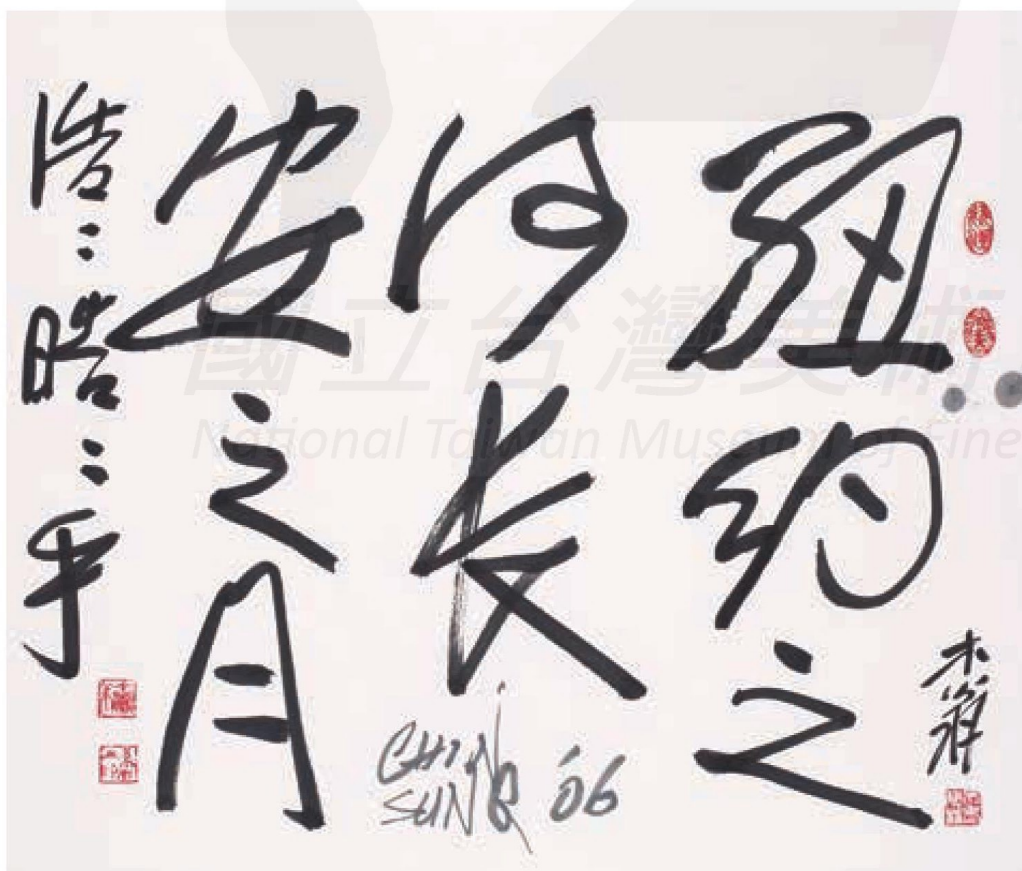 紐約之
河长
安之月
浩〻晧〻乎
CHIN
SUNG '06
國立台灣美術
National Taiwan Museum of Fine